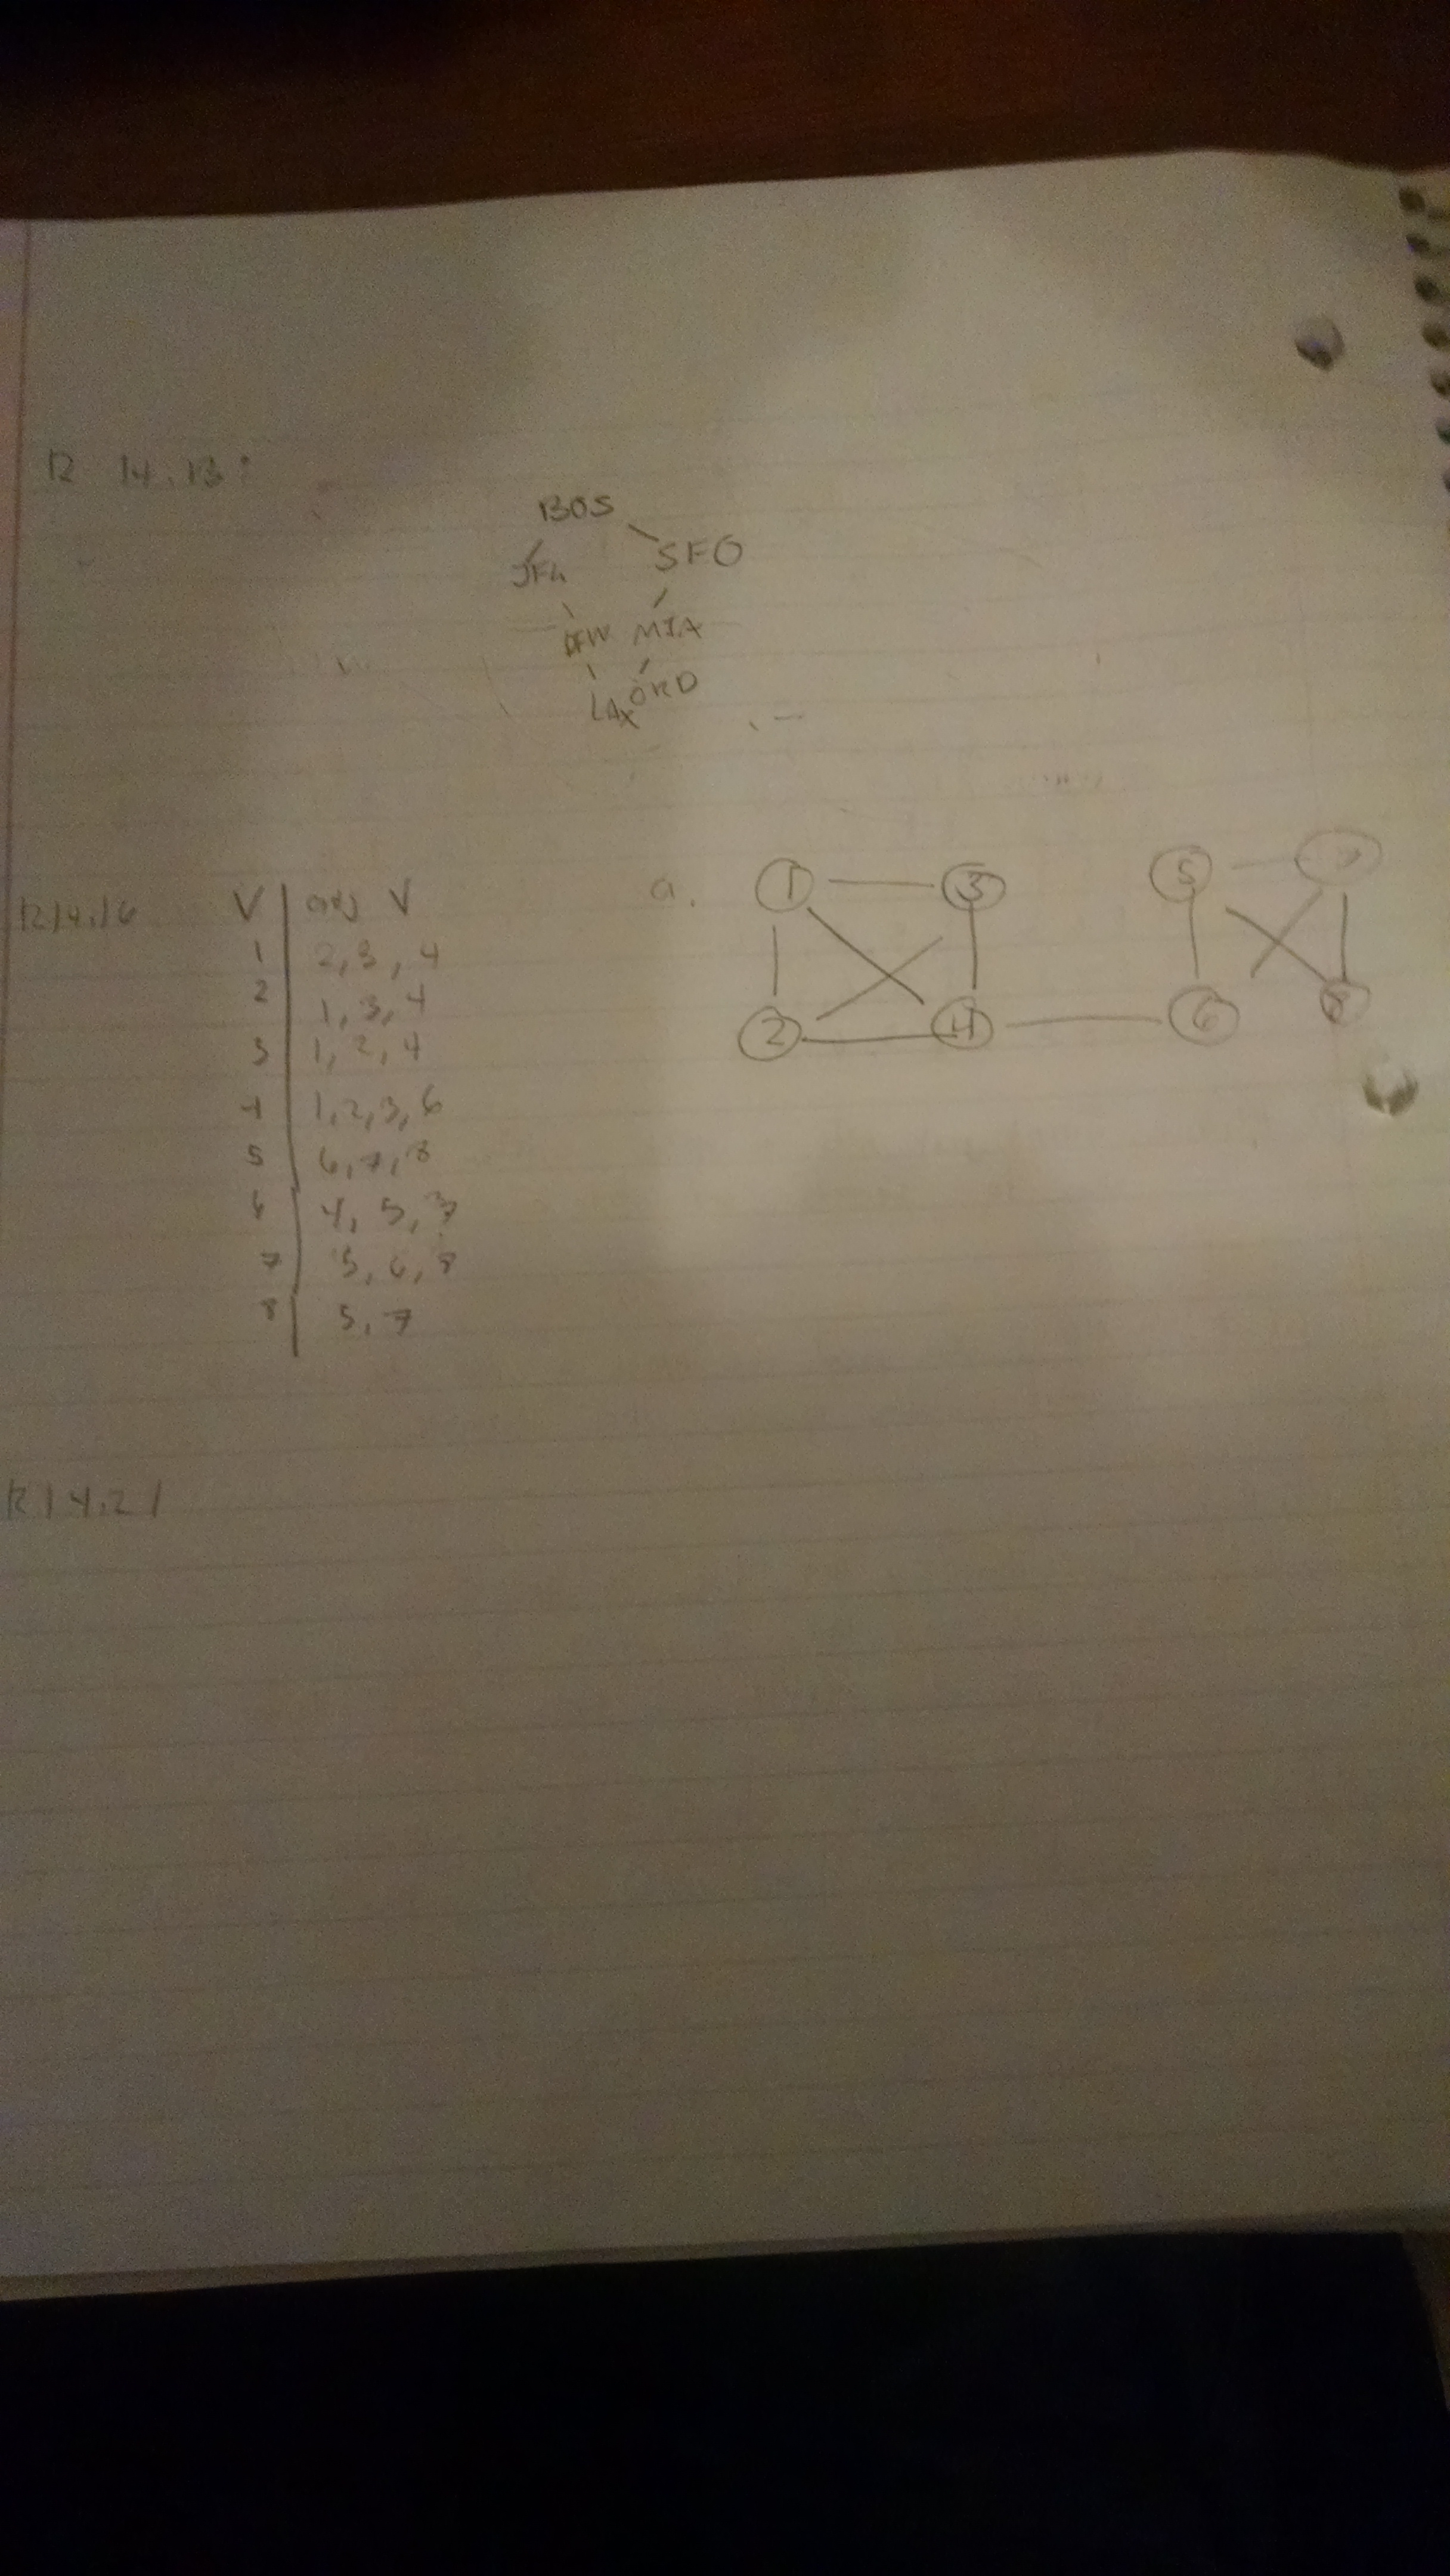 R 14.13:
BOS
JFK SFO
DFW MIA
LAX ORD
R14.16
V adj V
1 2,3,4
2 1,3,4
3 1,2,4
4 1,2,3,6
5 6,7,8
6 4,5,7
7 5,6,8
8 5,7
a.
1 3 5 7
2 4 6 8
R14.21